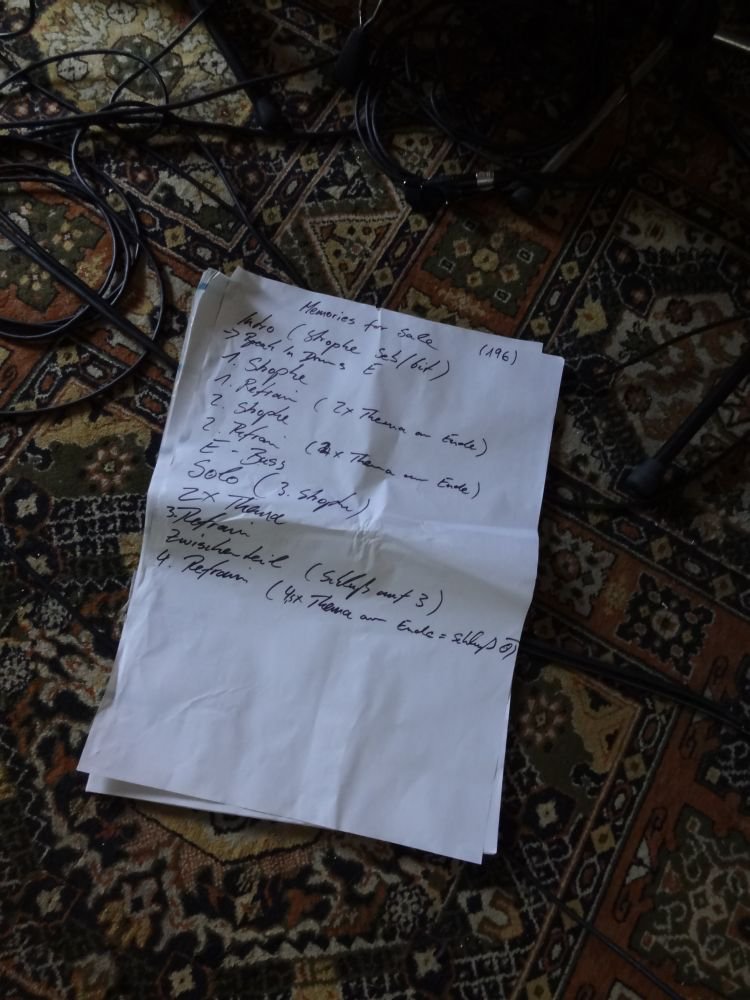 Memories for Sale (196)
Intro (Strophe
→ Break in Drums E
1. Strophe
1. Refrain (2x Thema am Ende)
2. Strophe
2. Refrain (2x Thema am Ende)
E - Bass
Solo (3. Strophe)
2x Thema
3. Refrain
Zwischenteil (Schluß auf 3)
4. Refrain (4x Thema am Ende = Schluß